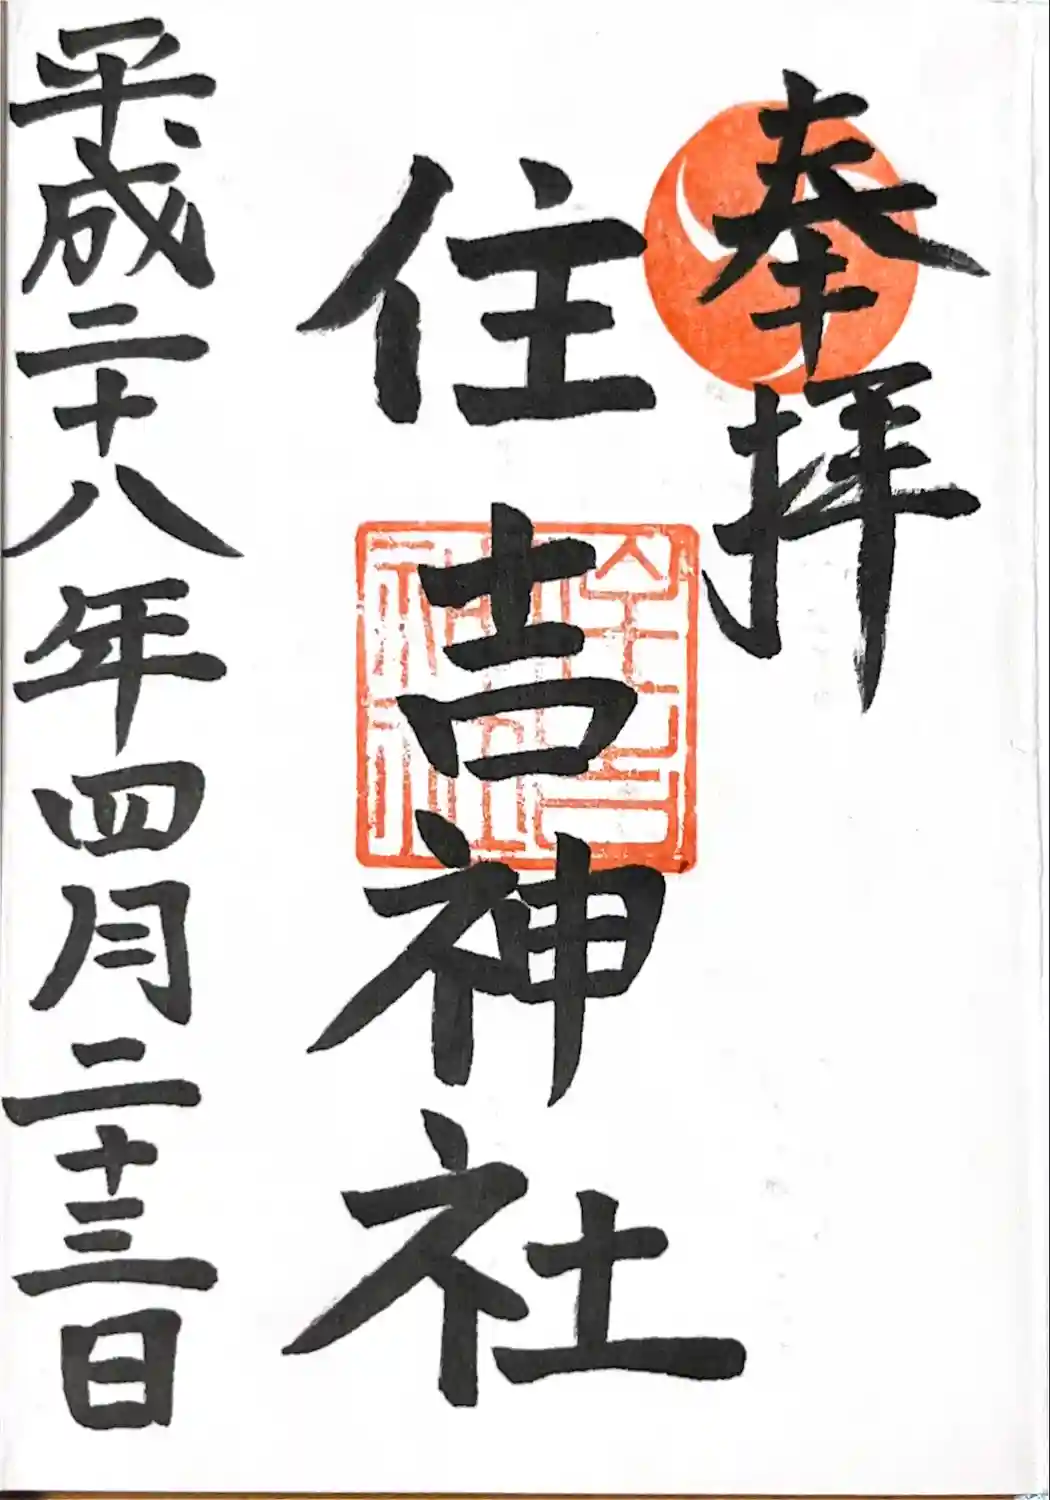 奉拝
住吉神社
平成二十八年四月二十三日